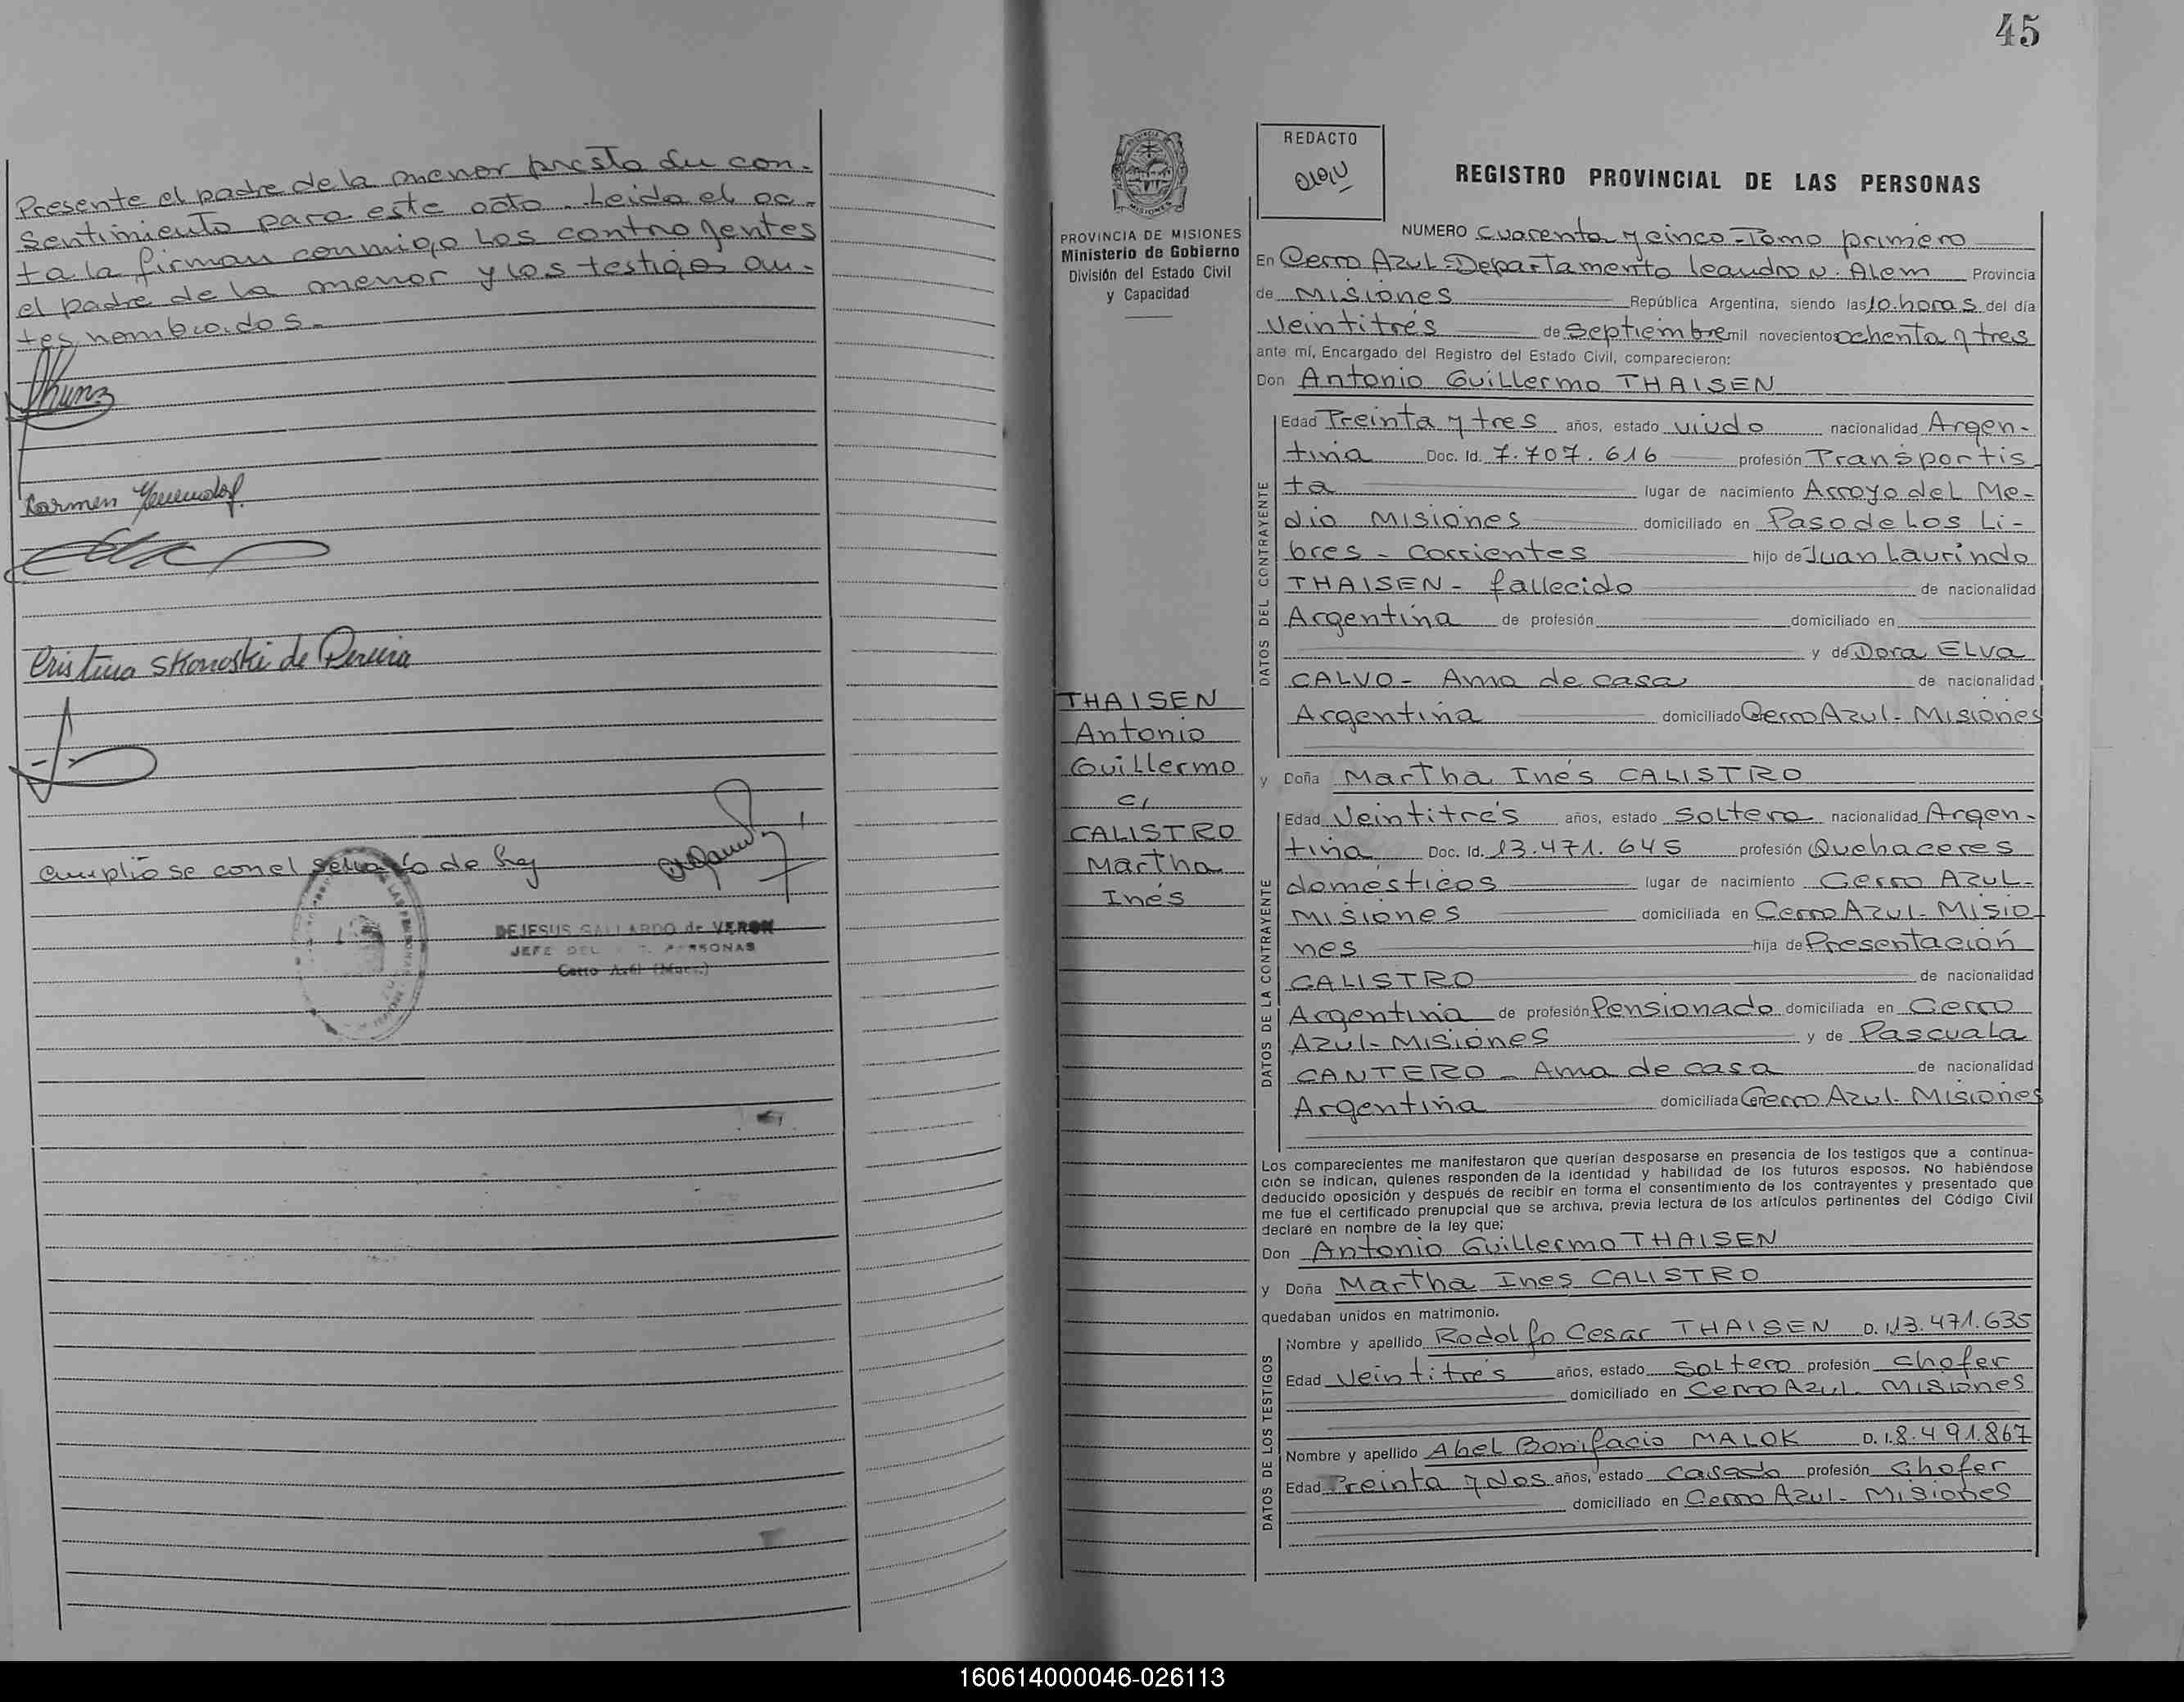 Presente el padre de la menor presta su con-
sentimiento para este acto. Leida el ac-
ta la firman conmigo los contrayentes
el padre de la menor y los testigos an-
tes nombrados.
Karmen
Cristina Skonoski de Pereira
Cumplióse con el sellado de ley
DEJESUS GALLARDO de VERON
JEFE DEL PERSONAS
Cerro Azul
45
REDACTO
REGISTRO PROVINCIAL DE LAS PERSONAS
PROVINCIA DE MISIONES
Ministerio de Gobierno
División del Estado Civil
y Capacidad
THAISEN
Antonio
Guillermo
c/
CALISTRO
Martha
Inés
NUMERO cuarenta y cinco - Tomo primero
En Cerro Azul - Departamento Leandro N. Alem Provincia
de Misiones República Argentina, siendo las 10 horas del día
veintitrés de Septiembre mil novecientos ochenta y tres
ante mí, Encargado del Registro del Estado Civil, comparecieron:
Don Antonio Guillermo THAISEN
DATOS DEL CONTRAYENTE
Edad Treinta y tres años, estado viudo nacionalidad Argen-
tina Doc. Id. 7.707.616 profesión Transportis
ta lugar de nacimiento Arroyo del Me-
dio Misiones domiciliado en Paso de los Li-
bres - Corrientes hijo de Juan Laurindo
THAISEN - fallecido de nacionalidad
Argentina de profesión domiciliado en
y de Dora Elva
CALVO - Ama de casa de nacionalidad
Argentina domiciliado Cerro Azul - Misiones
y Doña Martha Inés CALISTRO
DATOS DE LA CONTRAYENTE
Edad Veintitrés años, estado Soltera nacionalidad Argen-
tina Doc. Id. 13.471.645 profesión Quehaceres
domésticos lugar de nacimiento Cerro Azul -
Misiones domiciliada en Cerro Azul - Misio
nes hija de Presentación
CALISTRO de nacionalidad
Argentina de profesión Pensionado domiciliada en Cerro
Azul - Misiones y de Pascuala
CANTERO - Ama de casa de nacionalidad
Argentina domiciliada Cerro Azul - Misiones
Los comparecientes me manifestaron que querían desposarse en presencia de los testigos que a continua-
ción se indican, quienes responden de la identidad y habilidad de los futuros esposos. No habiéndose
deducido oposición y después de recibir en forma el consentimiento de los contrayentes y presentado que
me fue el certificado prenupcial que se archiva, previa lectura de los artículos pertinentes del Código Civil
declaré en nombre de la ley que;
Don Antonio Guillermo THAISEN
y Doña Martha Ines CALISTRO
quedaban unidos en matrimonio.
DATOS DE LOS TESTIGOS
Nombre y apellido Rodolfo Cesar THAISEN D. I. 13.471.635
Edad Veintitrés años, estado Soltero profesión chofer
domiciliado en Cerro Azul - Misiones
Nombre y apellido Abel Bonifacio MALOK D. I. 8.491.867
Edad Treinta y dos años, estado casado profesión chofer
domiciliado en Cerro Azul - Misiones
160614000046-026113